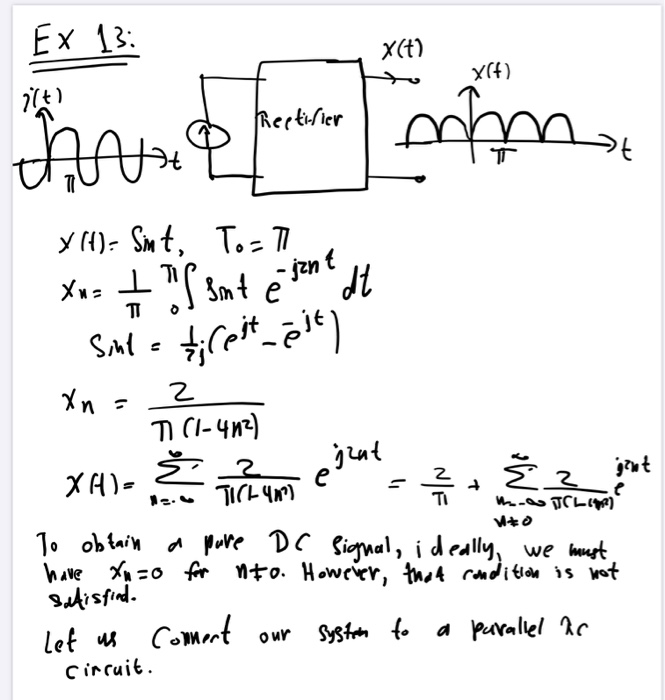 Ex 13:
i(t)
x(t)
x(t)
Rectifier
t
π
t
π
x(t) = Sin t, T₀ = π
xₙ = 1/π ∫₀^π Sin t e^{-j2nt} dt
Sin t = 1/2j (e^{jt} - e^{-jt})
xₙ = 2/(π(1-4n²))
x(t) = ∑_{n=-∞}^{∞} 2/(π(1-4n²)) e^{j2nt} = 2/π + ∑_{n=-∞, n≠0}^{∞} 2/(π(1-4n²)) e^{j2nt}
To obtain a pure DC signal, ideally, we must
have xₙ=0 for n≠0. However, that condition is not
satisfied.
Let us connect our system to a parallel RC
circuit.